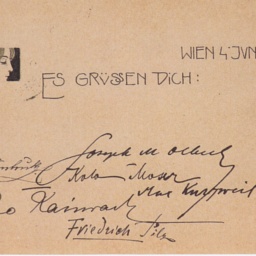 WIEN 4 JVN
ES GRÜSSEN DICH:
Joseph M Olbrich
Kolo Moser
Max Kurzweil
Leo Kainradl
Friedrich Pilz